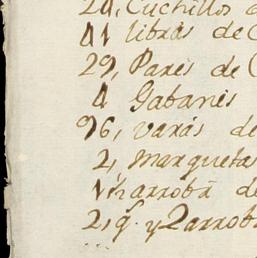 24, Cuchillos
41 libras de
29, Pares de
4 Gabanes
96, varas de
2, marquetas
arroba de
2, q.s y 2 arrob